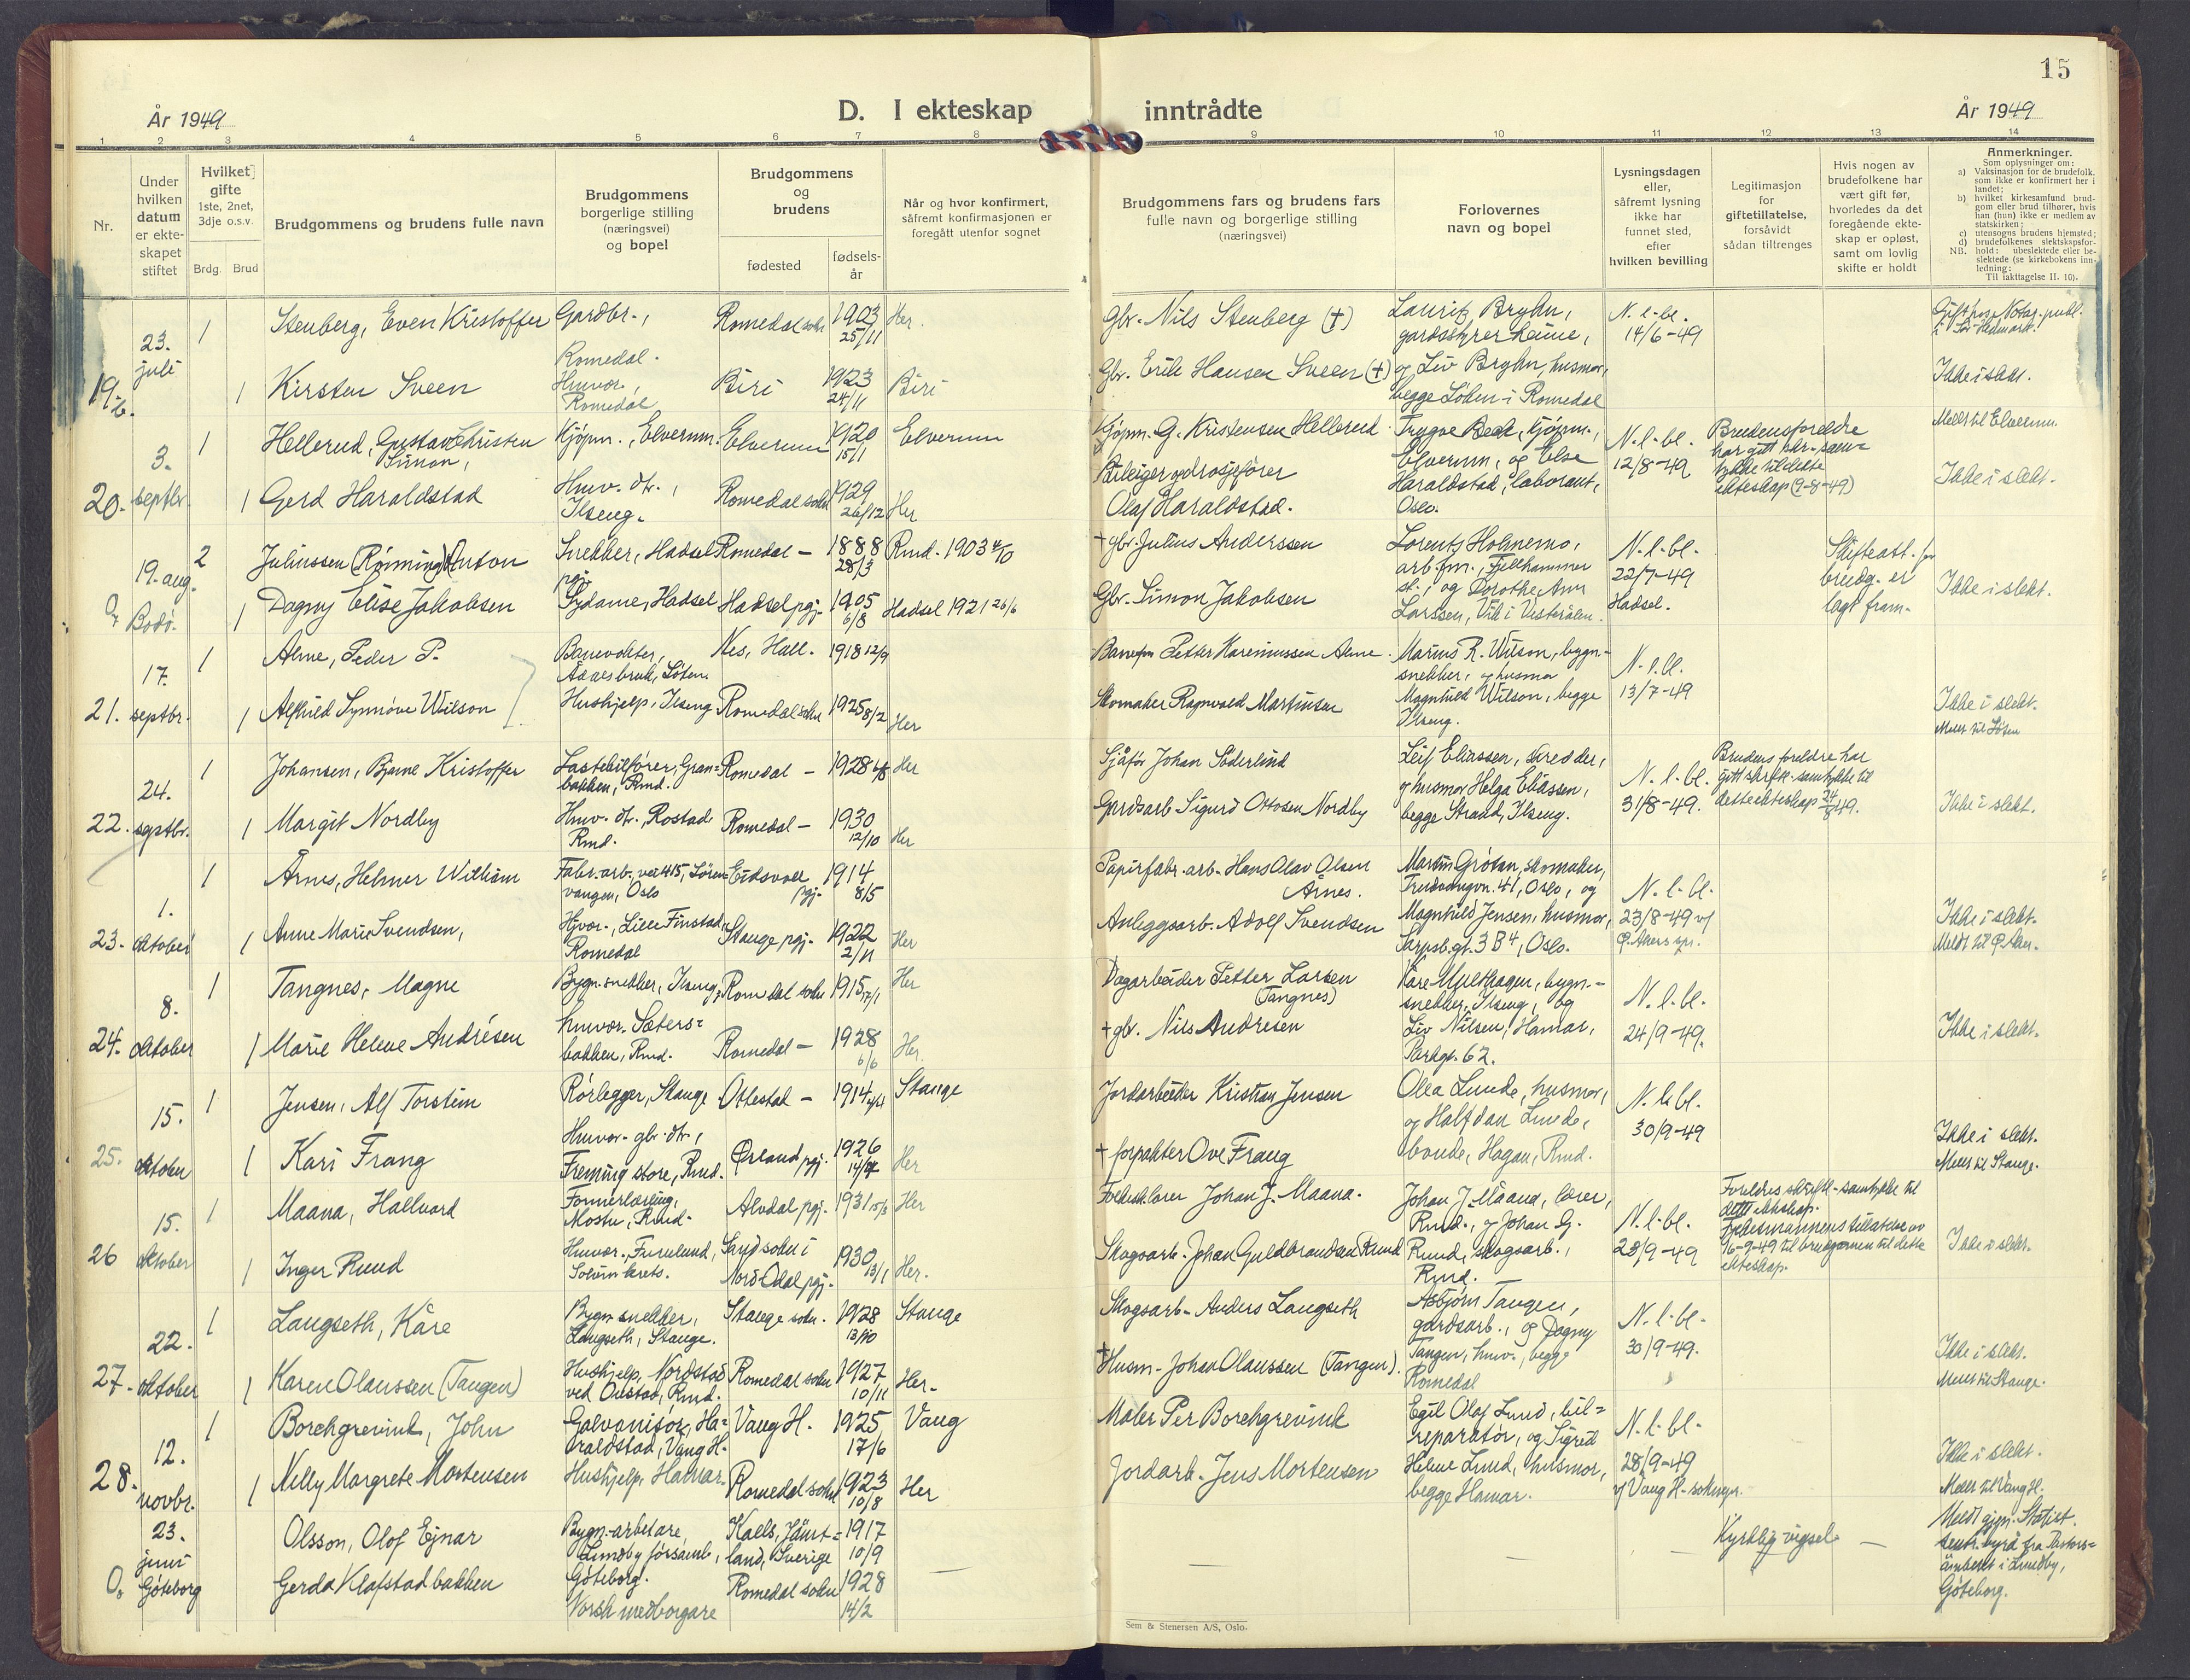 15
År 1949
D. I ekteskap inntrådte
År 1949
1 2 3 4 5 6 7 8 9 10 11 12 13 14
Nr.
Under hvilken datum er ekteskapet stiftet
Hvilket gifte 1ste, 2net, 3dje o.s.v.
Brdg. Brud
Brudgommens og brudens fulle navn
Brudgommens borgerlige stilling (næringsvei) og bopel
Brudgommens og brudens
fødested
fødsels-år
Når og hvor konfirmert, såfremt konfirmasjonen er foregått utenfor sognet
Brudgommens fars og brudens fars fulle navn og borgerlige stilling (næringsvei)
Forlovernes navn og bopel
Lysningsdagen eller, såfremt lysning ikke har funnet sted, efter hvilken bevilling
Legitimasjon for giftetillatelse, forsåvidt sådan tiltrenges
Hvis nogen av brudefolkene har vært gift før, hvorledes da det foregående ekteskap er opløst, samt om lovlig skifte er holdt
Anmerkninger.
Som oplysninger om:
a) Vaksinasjon for de brudefolk, som ikke er konfirmert her i landet;
b) hvilket kirkesamfund brudgom eller brud tilhører, hvis han (hun) ikke er medlem av statskirken;
c) utensogns brudens hjemsted;
d) brudefolkenes slektskapsforhold: ubeslektede eller beslektede (se kirkebokens innledning:
NB. Til iakttagelse II. 10).
19. b. 23. juli
1 Stenberg, Even Kristoffer Gardbr., Romedal. Romedal sokn 1903 25/11 Her.
Gbr. Nils Stenberg (†)
Lauritz Bryhn, gardsstyrer, og Liv Bryhn, husmor, begge Løken i Romedal
N.l.bl. 14/6-49
Gift hos Notar. publ. i Sør-Hedmark.
1 Kirsten Sveen Husvor., Romedal Biri 1923 24/11 Biri
Gbr. Erik Hansen Sveen (†)
Ikke i slekt.
20. 3. septbr.
1 Hellerud, Gustav Christen Simon, Kjøpm., Elverum. Elverum 1920 15/1 Elverum
Kjøpm. G. Kristensen Hellerud.
Trygve Beck, kjøpm., Elverum, og Else Haraldstad, laborant, Oslo.
N.l.bl. 12/8-49
Brudens foreldre har gitt skr. samtykke til dette ekteskap (9-8-49)
Meldt til Elverum.
1 Gerd Haraldstad Husv. dtr., Ilseng. Romedal sokn 1929 26/12 Her
Bileiger og drosjefører Olaf Haraldstad.
Ikke i slekt.
0. 19. aug. Bodø.
2 Juliussen (Rønning) Anton Snekker, Hadsel pgj. Romedal — 1888 28/3 Rmd. 1903 4/10
† gbr. Julius Anderssen
Lorentz Holmemo, arb.fm., Fjellhammer st., og Dorothe Ann Larssen, Vik i Vesterålen.
N.l.bl. 22/7-49 Hadsel.
Skifteatt. for brudg. er lagt fram.
1 Dagny Elise Jakobsen Sydame, Hadsel Hadsel pgj. 1905 6/8 Hadsel 1921 26/6
Gbr. Simon Jakobsen
Ikke i slekt.
21. 17. septbr.
1 Alme, Peder P. Banevokter, Ådalsbruk, Løten. Nes, Hall. 1918 12/9
Banefm. Petter Karenussen Alme.
Marius R. Wilson, bygn.-snekker, og husmor Magnhild Wilson, begge Ilseng.
N.l.bl. 13/7-49
1 Alfhild Synnøve Wilson Hushjelp, Ilseng Romedal sokn 1925 8/2 Her
Skomaker Ragnvald Martinsen
Ikke i slekt.
Meldt til Løten
22. 24. septbr.
1 Johansen, Bjarne Kristoffer Lastebilfører, Granbakken, Rmd. Romedal — 1928 6/8 Her
Sjåfør Johan Søderlind
Leif Eliassen, skredder, og husmor Helga Eliassen, begge Strand, Ilseng.
N.l.bl. 31/8-49.
Brudens foreldre har gitt skriftl. samtykke til dette ekteskap 24/8 49.
1 Margit Nordby Husv. dtr., Rostad Rmd. Romedal — 1930 12/10 Her
Gardsarb. Sigurd Ottosen Nordby
Ikke i slekt.
23. 1. oktober
1 Årnes, Helmer William Fabr.arb., vei 415, Lørenvangen, Oslo Eidsvoll pgj. 1914 8/5
Papirfabr.arb. Hans Olav Olsen Årnes.
Martin Grøtan, skomaker, 41, Oslo, og Magnhild Jensen, husmor, Sarpsb.gt. 3 B⁴, Oslo.
N.l.bl. 23/8-49 v/ Ø. Akers spr.
1 Anne Marie Svendsen, Hjvor., Lille Finstad, Romedal Stange pgj. 1922 2/11 Her
Anleggsarb. Adolf Svendsen
Ikke i slekt.
Meldt til Ø. Aker.
24. 8. oktober
1 Tangnes, Magne Bygn.snekker, Ilseng, Romedal sokn 1915 17/1 Her
Dagarbeider Petter Larsen (Tangnes)
Kåre Multhagen, bygn.-snekker, Ilseng, og Liv Nilsen, Hamar, Parkgt. 62.
N.l.bl. 24/9-49.
1 Marie Helene Andrésen husvor. Sætersbakken, Rmd. Romedal — 1928 6/6 Her.
† gbr. Nils Andresen
Ikke i slekt.
25. 15. oktober
1 Jensen, Alf Torstein Rørlegger, Stange Ottestad — 1914 Stange
Jordarbeider Kristian Jensen
Olea Lunde, husmor, og Halfdan Lunde, bonde, Hagan, Rmd.
N.l.bl. 30/9-49
1 Kari Frang Husvor. gbr. dtr., Freming store, Rmd. Ørland pgj. 1926 Her
† forpakter Ove Frang
Ikke i slekt.
Meldt til Stange.
26 15. oktober
1 Maana, Hallvard Formerlærling, Mostu, Rmd. Alvdal pgj. 1931 15/6 Her
Folkesk.lærer Johan J. Maana.
Johan J. Måana, lærer, Rmd., og Johan G. Ruud, skogsarb., Rmd.
N.l.bl. 23/9-49
Foreldres skriftl. samtykke til dette ekteskap. Fylkesmannens tillatelse av 16-9-49 til brudgommen til dette ekteskap.
1 Inger Ruud Husvor., Furulund, Sand sokn i Nord-Odal pgj. 1930 13/1 Her.
Skogsarb. Johan Guldbrandsen Ruud
Ikke i slekt.
27. 22. oktober
1 Langseth, Kåre Bygn.snekker, Langseth, Stange. Stange sokn. 1928 13/10 Stange
Skogsarb. Anders Langseth
Asbjørn Tangen, gardsarb., og Dagny Tangen, husv., begge Romedal
N.l.bl. 30/9-49.
1 Karen Olaussen (Tangen) Hushjelp, Nordstad ved Oustad, Rmd. Romedal sokn 1927 10/11 Her.
† Husm. Johan Olaussen (Tangen).
Ikke i slekt.
Meldt til Stange.
28. 12. novbr.
1 Borchgrevink, John Galvanisør, Haraldstad, Vang H. Vang H. 1925 17/6 Vang
Maler Per Borchgrevink
Egil Olaf Lund, bilreparatør, og Sigrid Helene Lund, husmor, begge Hamar.
N.l.bl. 28/9-49 v/ Vang H. soknepr.
1 Nelly Margrete Mortensen Hushjelp, Hamar. Romedal sokn 1923 10/8 Her
Jordarb. Jens Mortensen
Ikke i slekt.
Meldt til Vang H.
0. 23. juni Göteborg
Olsson, Olof Ejnar Bygn.-arbetare, Lundby församl., Göteborg. Kaels, Jämtland, Sverige 1917 10/9
— — — Kyrklig vigsel —
Meldt gjn. Statist. sentr.byrå fra Pastorsämbetet i Lundby, Göteborg.
Gerda Klafstadbakken Norsk medborgare Romedal sokn 1928 14/2 —
Sem & Stenersen A/S, Oslo.